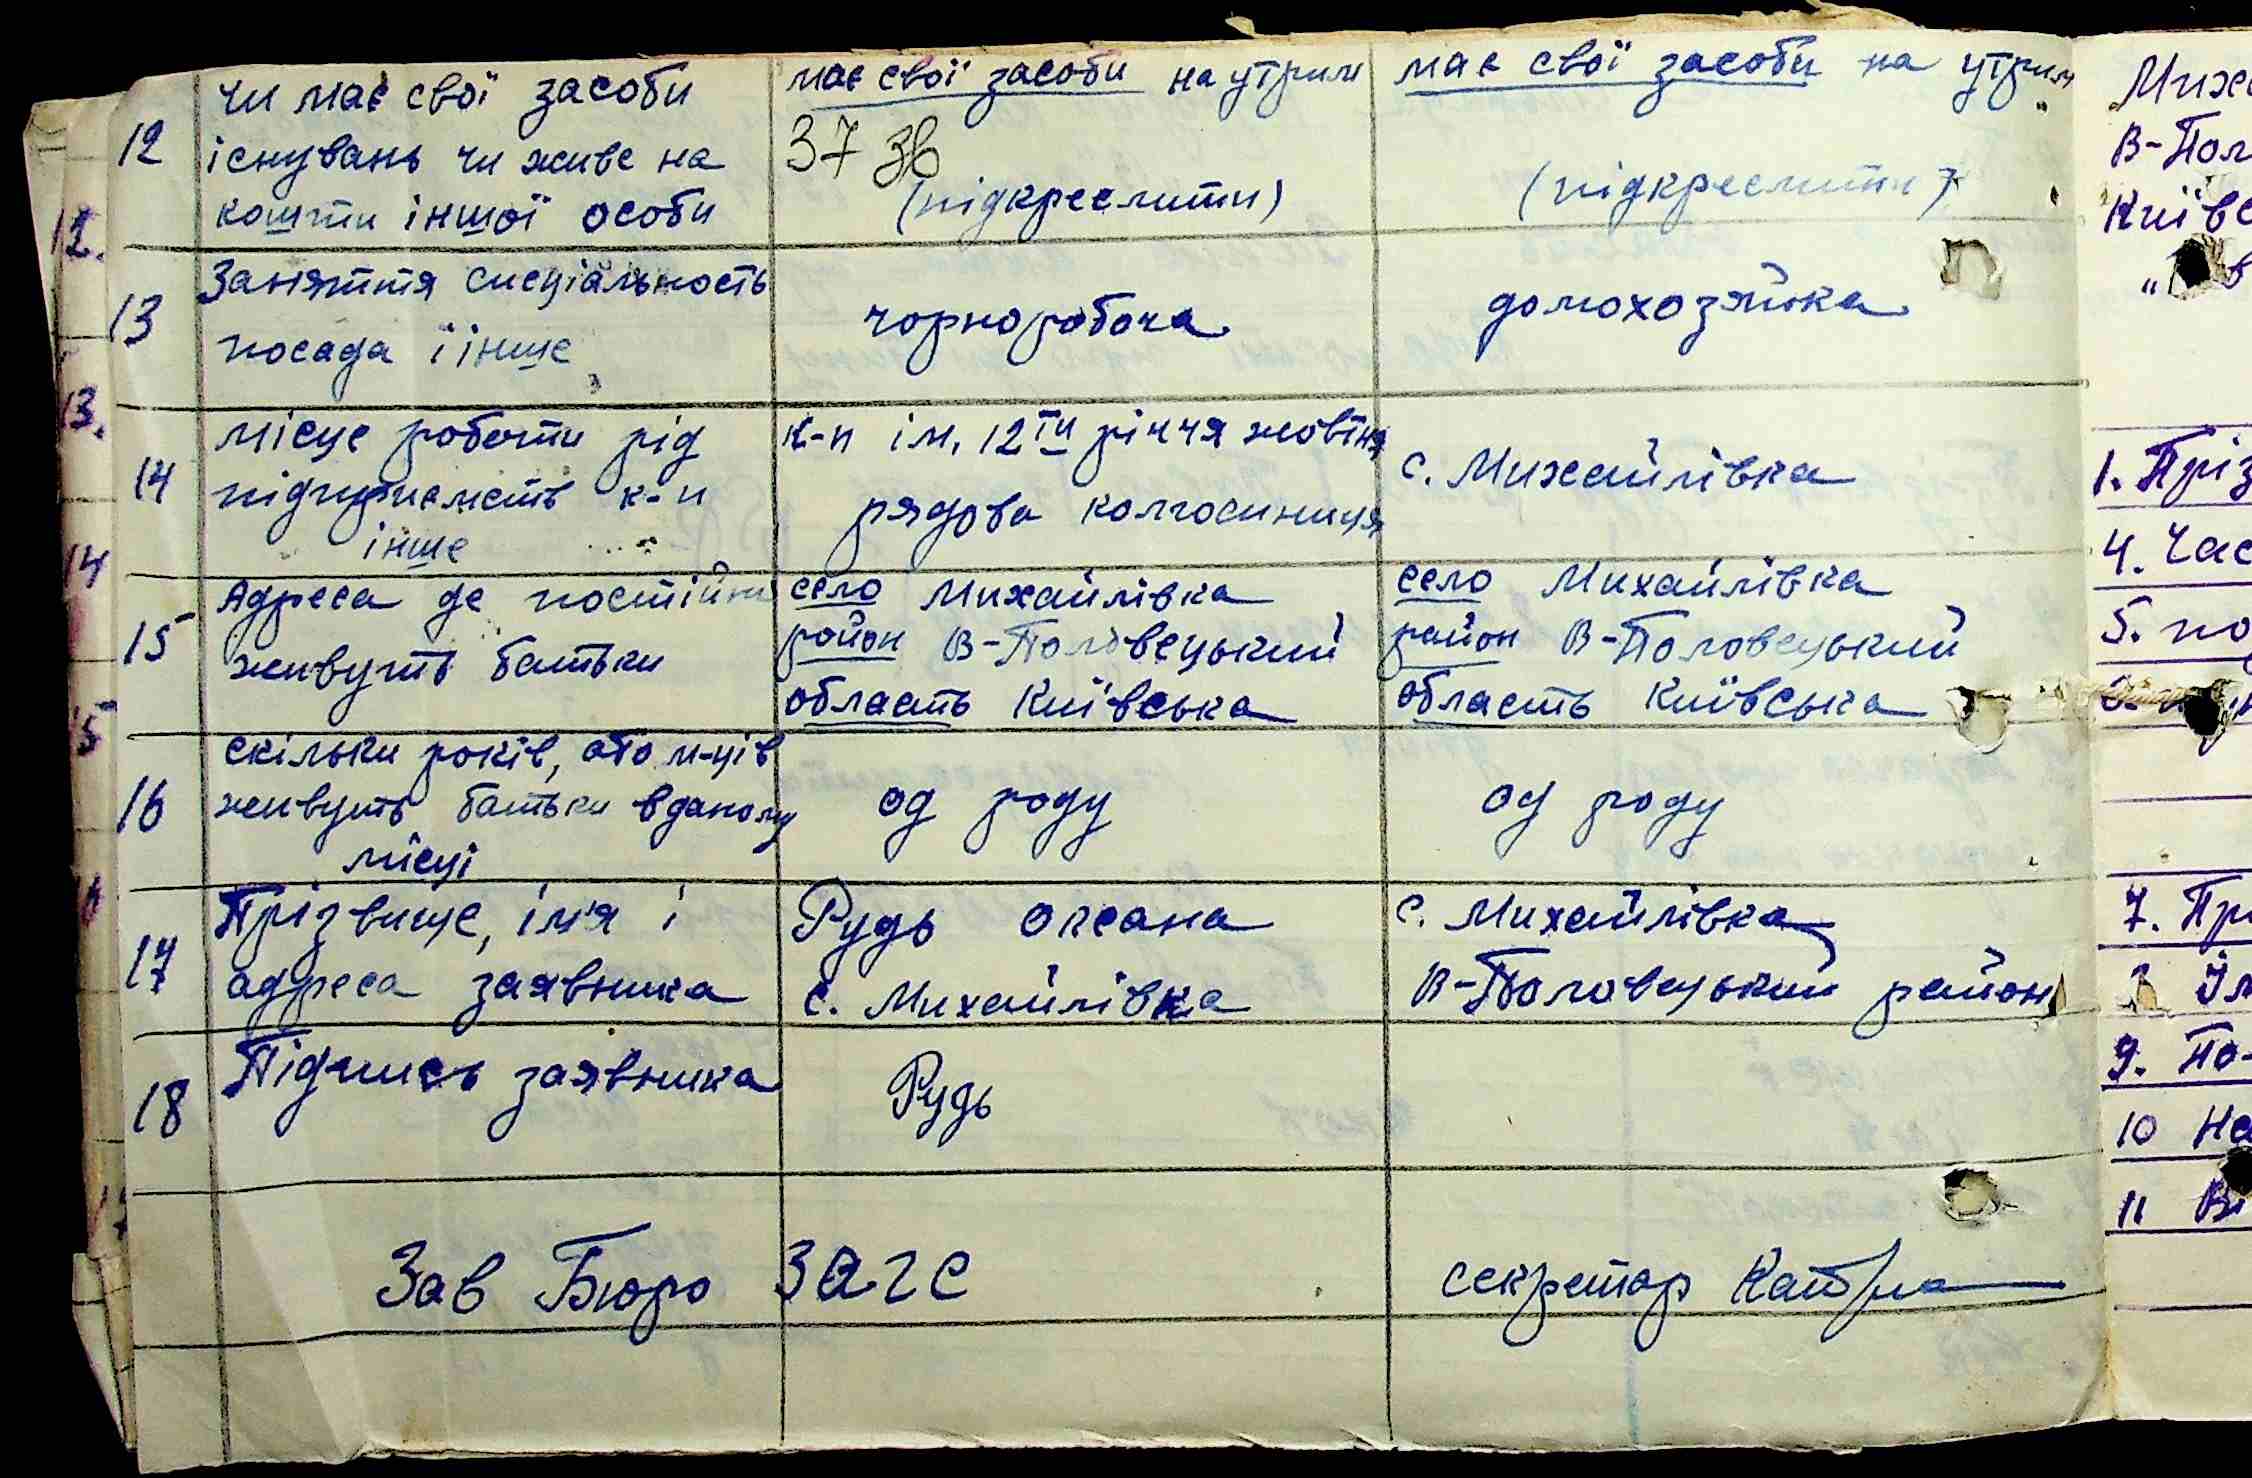 12 чи має свої засоби
існувань чи живе на
кошти іншої особи
має свої засоби на утрим
37 зв
(підкреслити)
має свої засоби на утрим
(підкреслити)
13 Заняття специіальность
посада і інше
чорноробоча
домохозяйка
14 місце роботи рід
підприємств к-п
інше
к-п ім. 12ти річчя жовтня
рядова колгоспниця
с. Михайлівка
15 Адреса де постійни
живуть батьки
село Михайлівка
район В-Половецький
область Київська
село Михайлівка
район В-Половецький
область Київська
16 скільки років, або м-ців
живуть батьки в даному
місці
од роду
од роду
17 Прізвище, ім'я і
адреса заявника
Рудь Оксана
с. Михайлівка
с. Михайлівка
В-Половецький район
18 Підпись заявника
Рудь
Зав Бюро Загс
секретар
12.
13.
14
15
Миха
В-Пол
Київс
1. Пріз
4. Час
5. по
7. Пр
Ім
9. По-
10 На
11 Ві